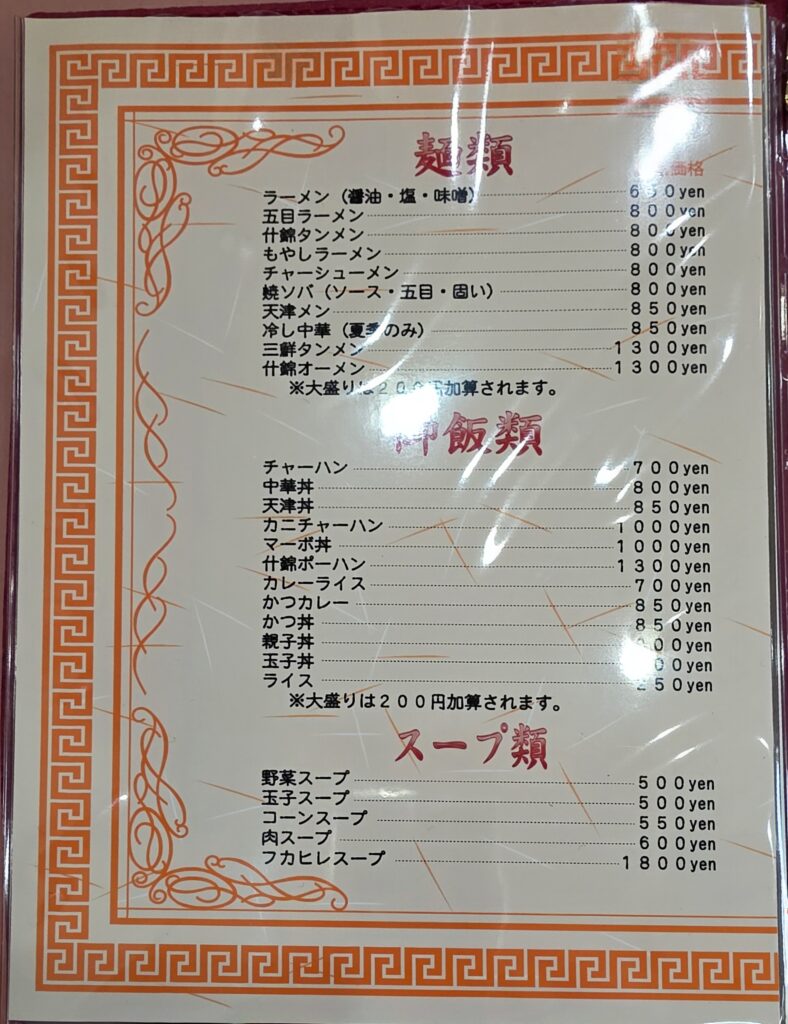 麺類
価格
ラーメン（醤油・塩・味噌） 650yen
五目ラーメン 800yen
什錦タンメン 800yen
もやしラーメン 800yen
チャーシューメン 800yen
焼ソバ（ソース・五目・固い） 800yen
天津メン 850yen
冷し中華（夏季のみ） 850yen
三鮮タンメン 1300yen
什錦オーメン 1300yen
※大盛りは200円加算されます。
御飯類
チャーハン 700yen
中華丼 800yen
天津丼 850yen
カニチャーハン 1000yen
マーボ丼 1000yen
什錦ポーハン 1300yen
カレーライス 700yen
かつカレー 850yen
かつ丼 850yen
親子丼
玉子丼
ライス 250yen
※大盛りは200円加算されます。
スープ類
野菜スープ 500yen
玉子スープ 500yen
コーンスープ 550yen
肉スープ 600yen
フカヒレスープ 1800yen